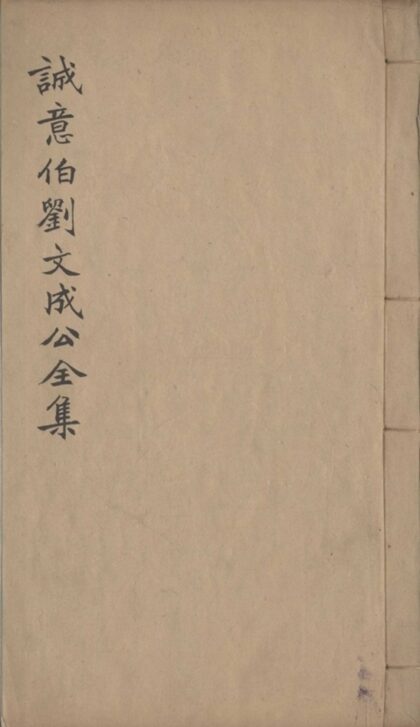 誠意伯劉文成公全集